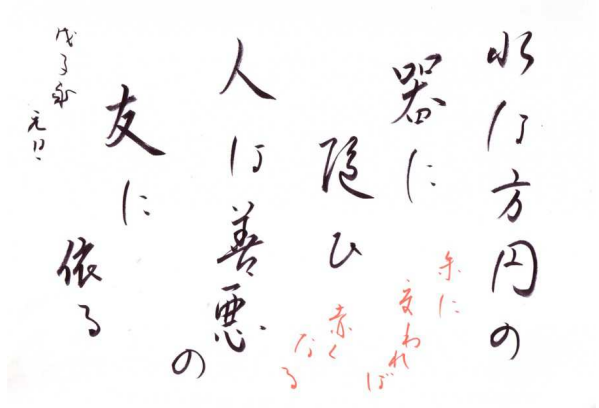 水は方円の
器に
随ひ
人は善悪の
友に
依る
朱に
交われば
赤く
なる
戊子
元日